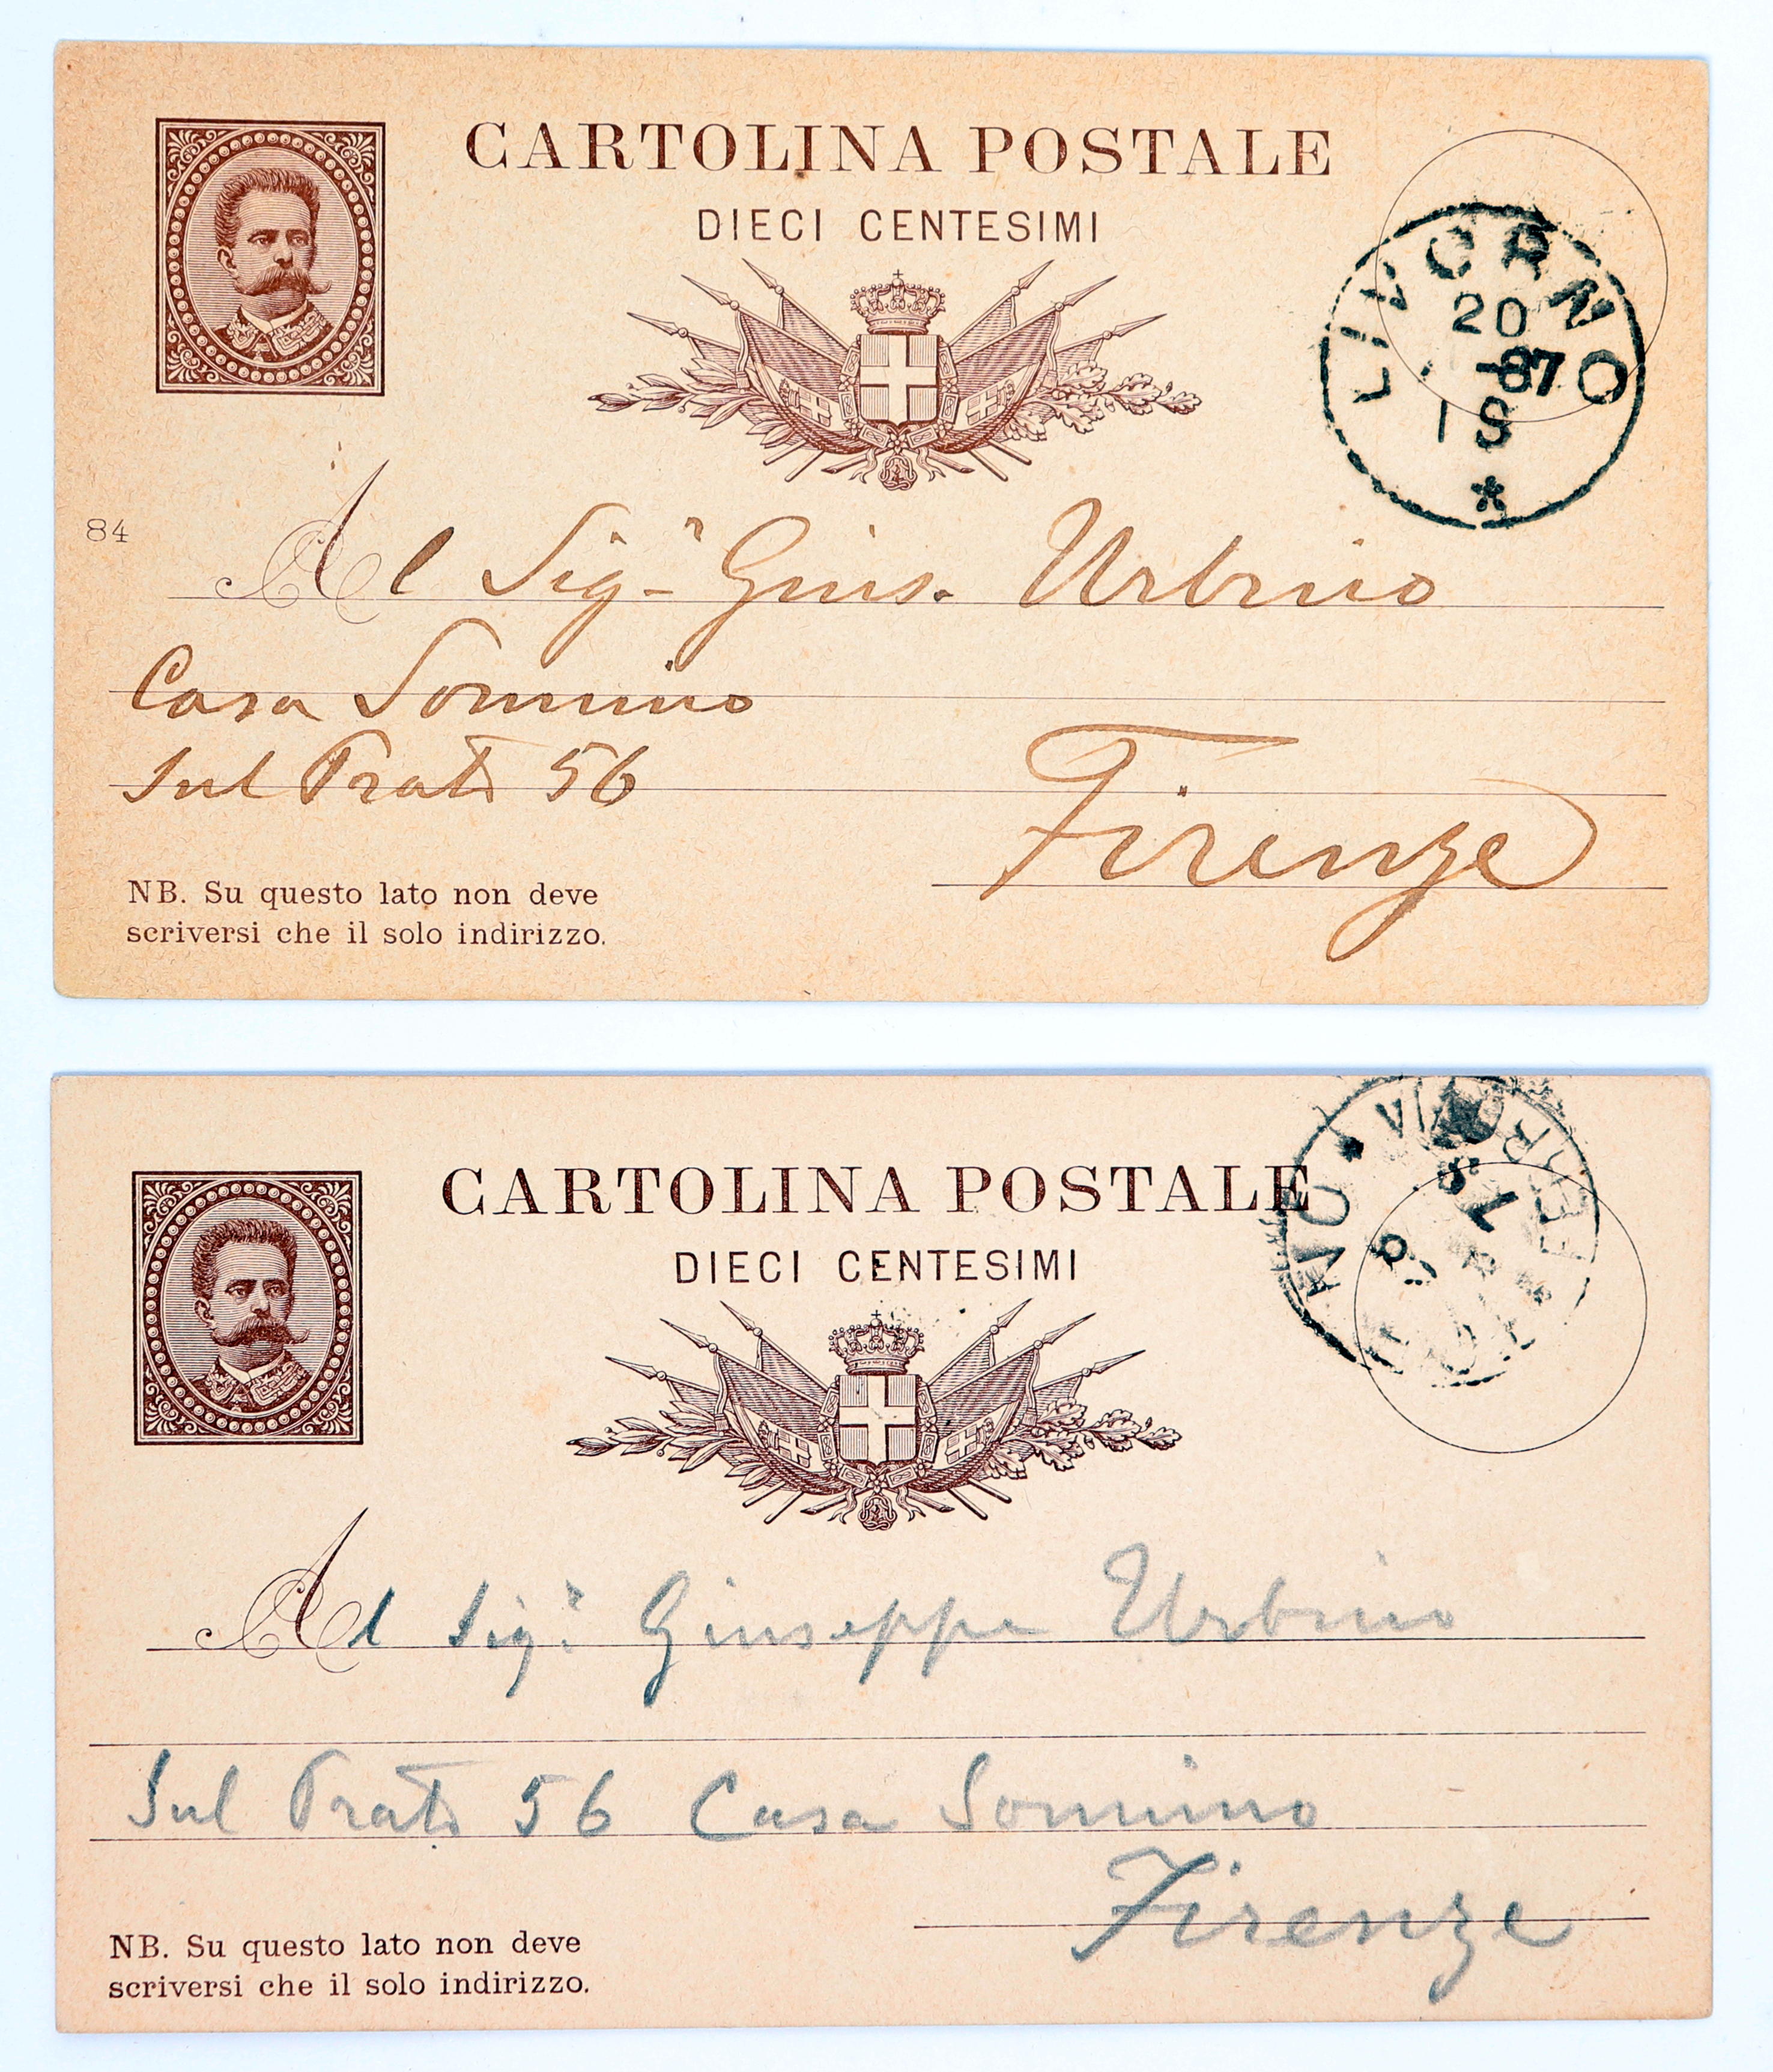 CARTOLINA POSTALE
DIECI CENTESIMI
LIVORNO
20
-87
1 S
*
84
Al Sigr Gius. Urbino
Casa Sonnino
Sul Prato 56
Firenze
NB. Su questo lato non deve
scriversi che il solo indirizzo.
CARTOLINA POSTALE
DIECI CENTESIMI
FERROVIA
Al Sigr Giuseppe Urbino
Sul Prato 56 Casa Sonnino
Firenze
NB. Su questo lato non deve
scriversi che il solo indirizzo.